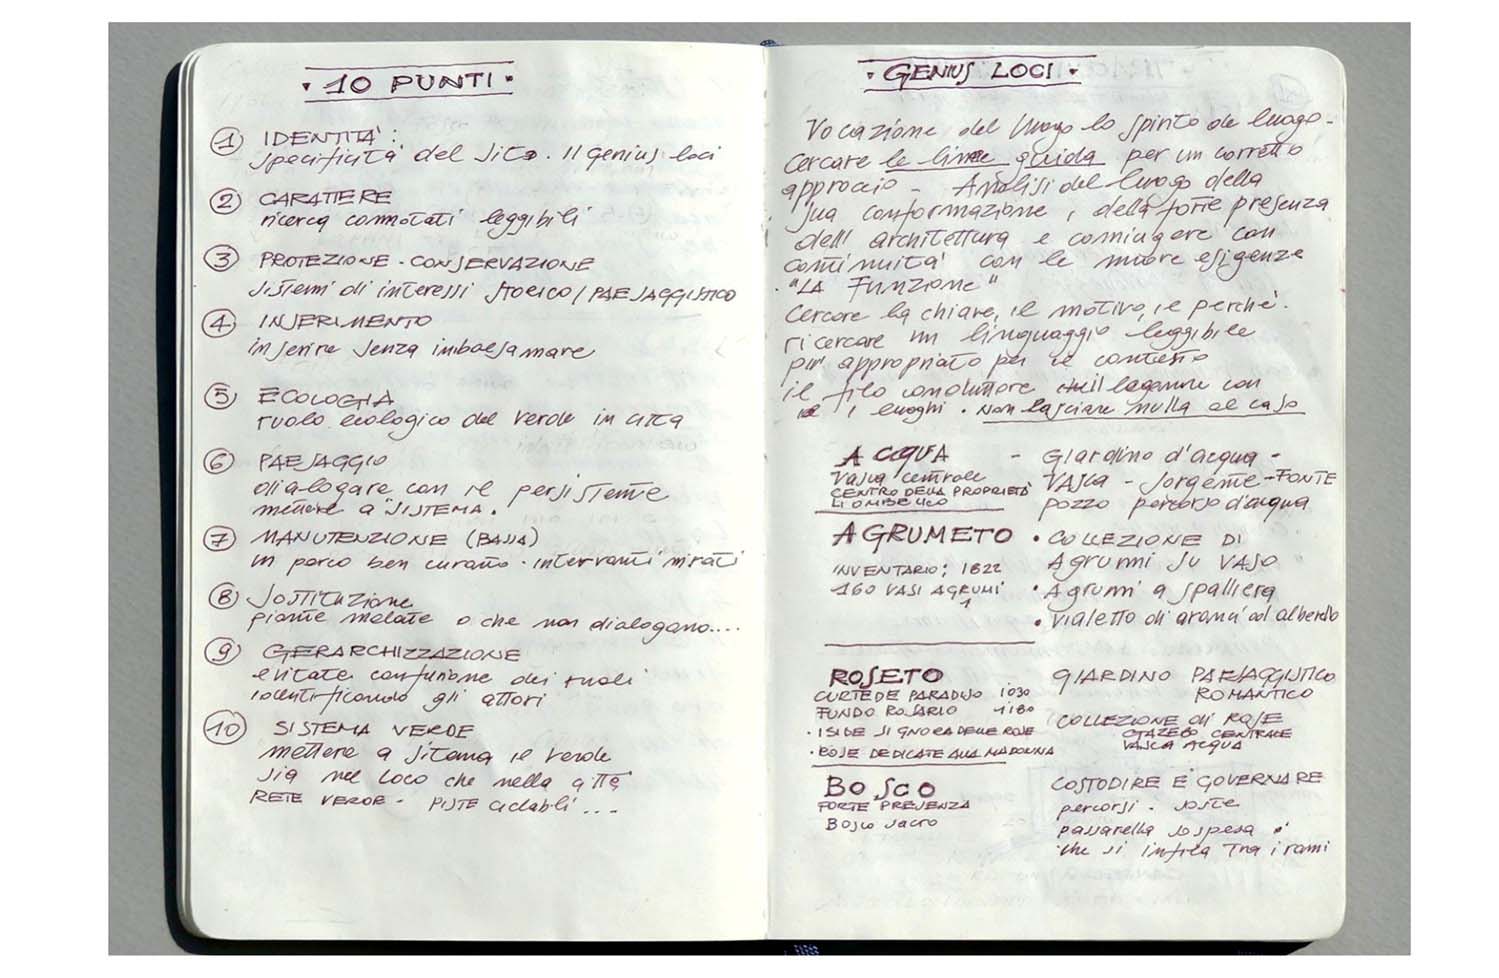 · 10 PUNTI ·
1 IDENTITA':
specificità del sito. Il Genius loci
2 CARATTERE
ricerca connotati leggibili
3 PROTEZIONE - CONSERVAZIONE
sistemi di interessi storico / PAESAGGISTICO
4 INSERIMENTO
inserire senza imbalsamare
5 ECOLOGIA
ruolo ecologico del verde in città
6 PAESAGGIO
dialogare con il persistente
mettere a "SISTEMA".
7 MANUTENZIONE (BASSA)
un parco ben curato - interventi mirati
8 Sostituzione
piante malate o che non dialogano....
9 GERARCHIZZAZIONE
evitate confusione dei ruoli
identificando gli attori
10 SISTEMA VERDE
mettere a sistema il verde
sia nel loco che nella città
RETE VERDE - PISTE ciclabili ...
· GENIUS LOCI ·
Vocazione del luogo lo spirito de luogo -
cercare le linee guida per un corretto
approccio - Analisi del luogo della
sua conformazione, della forte presenza
dell' architettura e coniugare con
continuità con le nuove esigenze
"LA FUNZIONE"
Cercare la chiave, il motivo, il perchè.
ricercare un linguaggio leggibile
più appropriato per il contesto
il filo conduttore legame con
i luoghi. Non lasciare nulla al caso
ACQUA - Giardino d'acqua -
Vasca centrale VASCA - Sorgente - FONTE
CENTRO DELLA PROPRIETÀ pozzo percorso d'acqua
L'OMBELICO
AGRUMETO • COLLEZIONE DI
Agrumi su VASO
INVENTARIO: 1822
160 VASI AGRUMI • Agrumi a spalliera
• Vialetto di aromi ed alberello
ROSETO GIARDINO PAESAGGISTICO
CURTE DE PARADISO 1030 ROMANTICO
FUNDO ROSARIO 1180 COLLEZIONE di ROSE
· ISIDE SIGNORA DELLE ROSE GAZEBO CENTRALE
· ROSE DEDICATE ALLA MADONNA VASCA ACQUA
BOSCO CUSTODIRE E GOVERNARE
FORTE PRESENZA percorsi - soste
Bosco sacro passarella sospesa
che si infila tra i rami